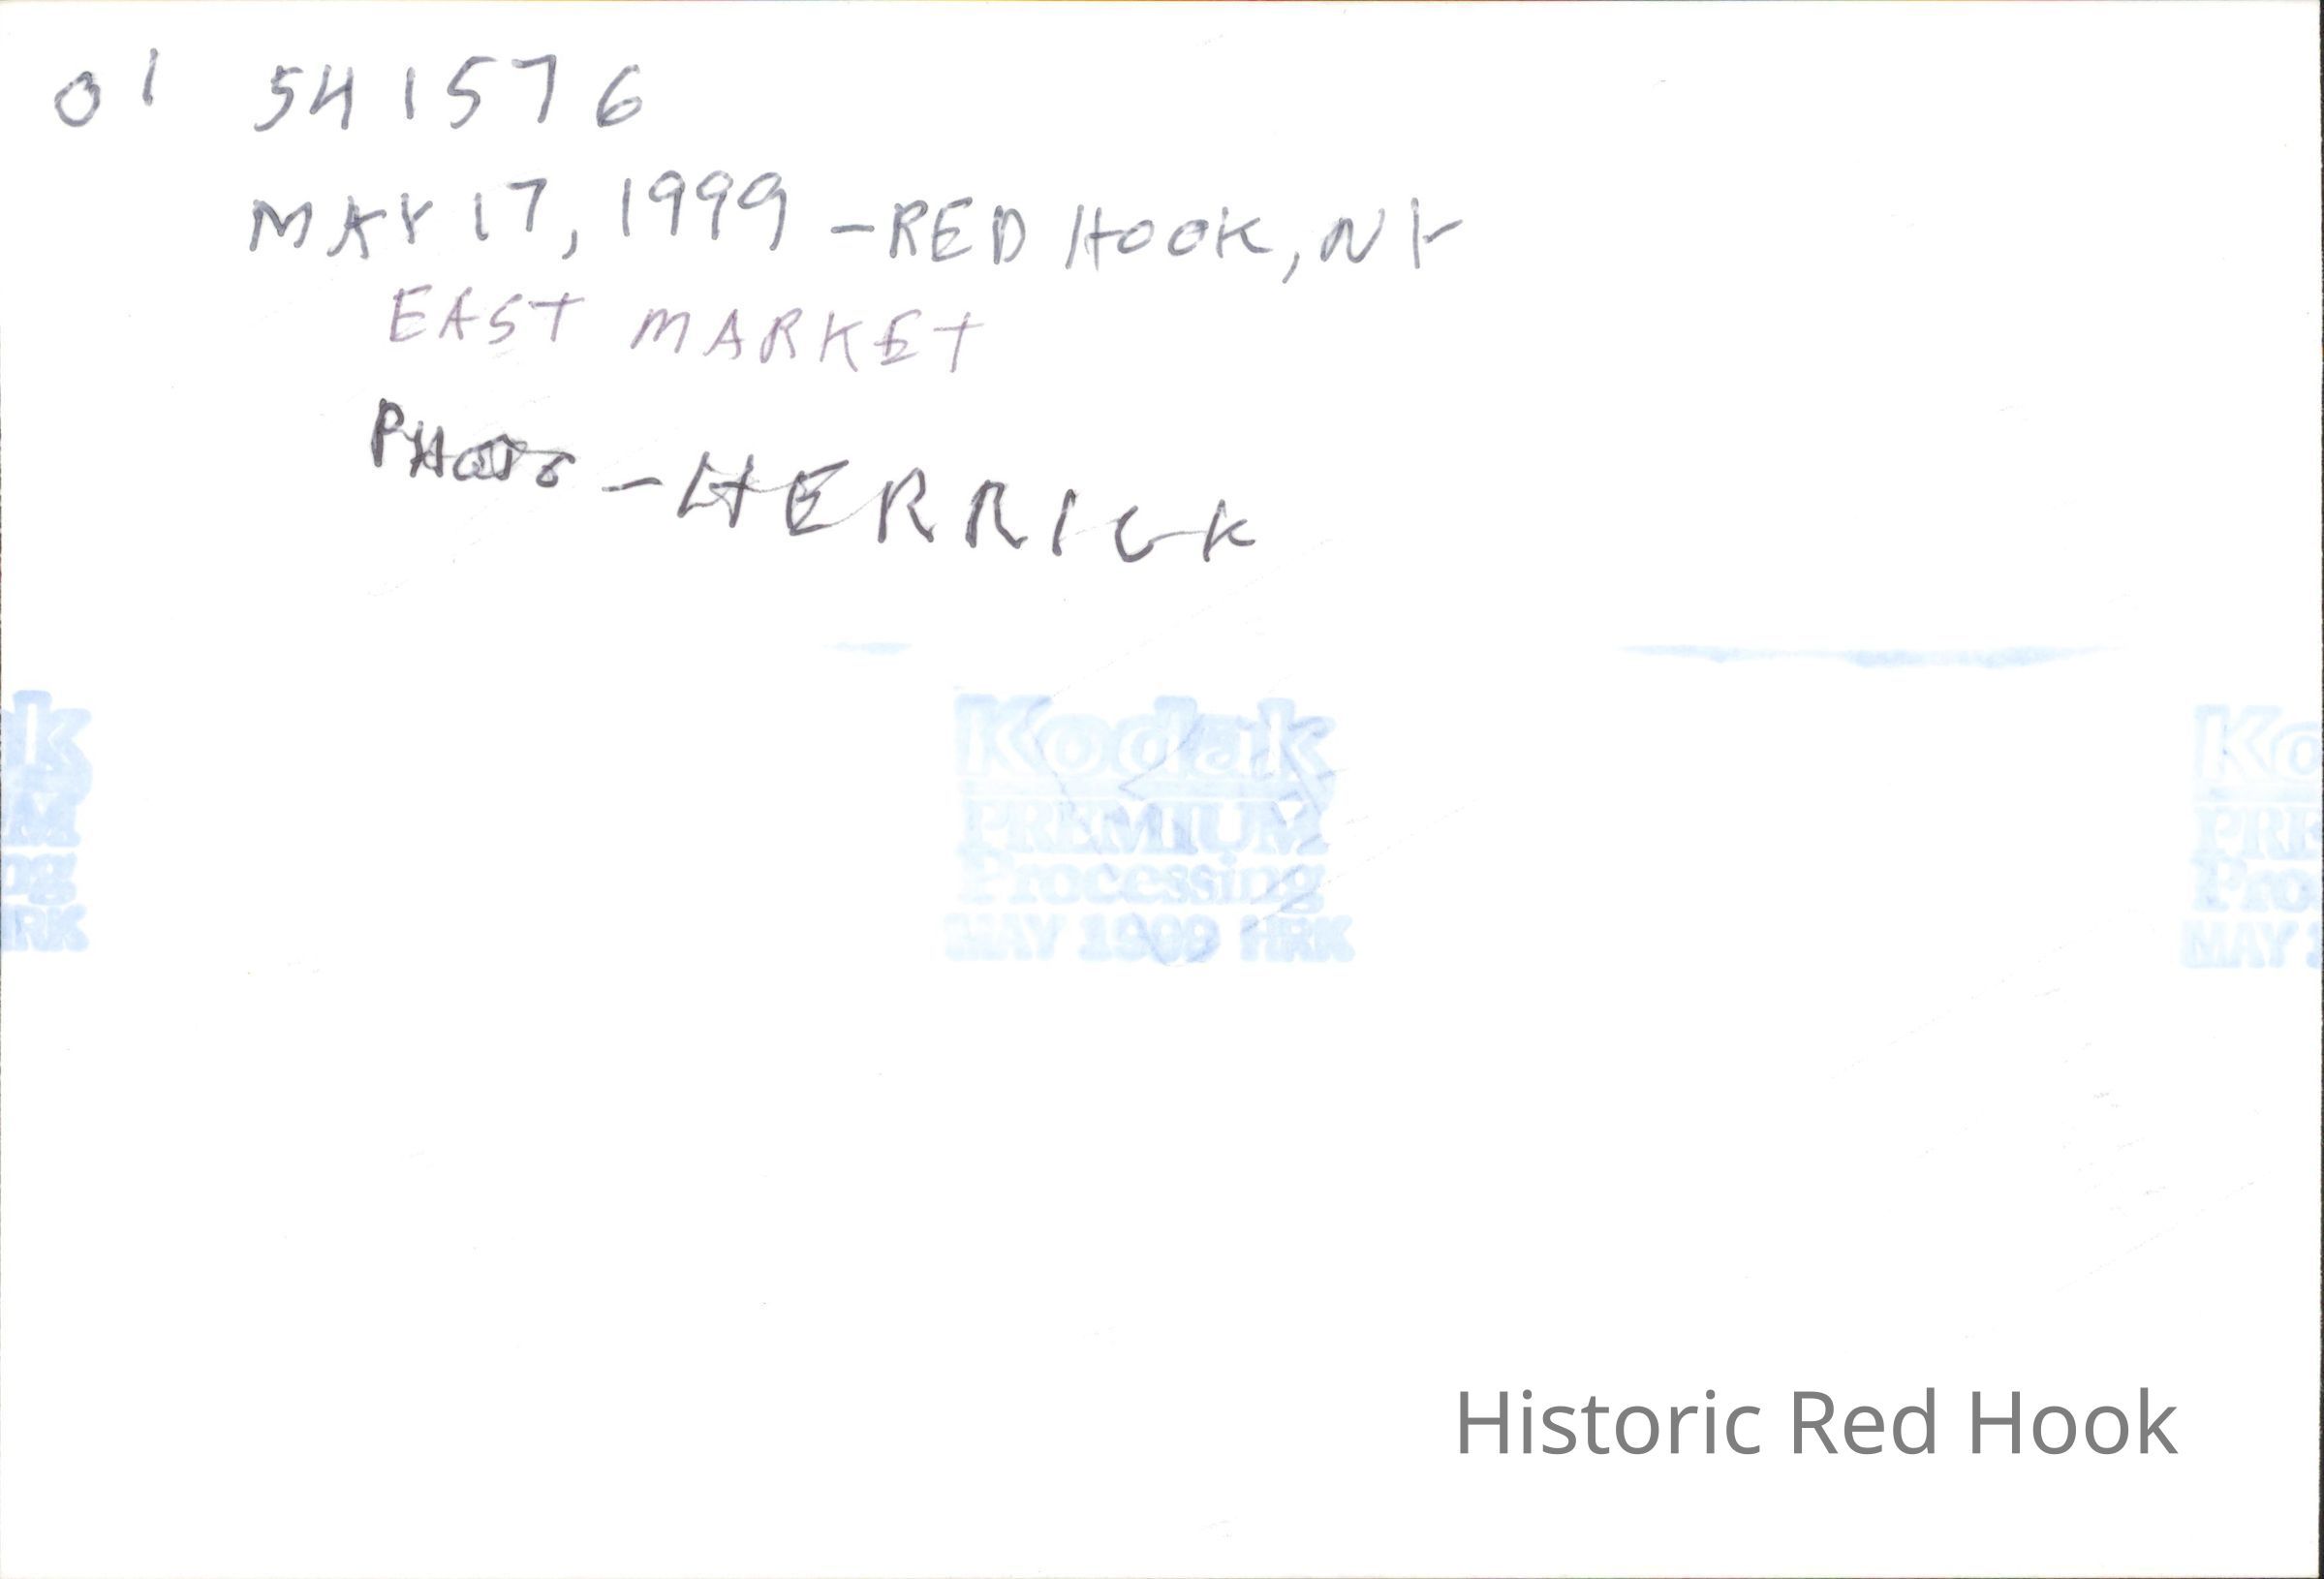 01 541576
MAY 17, 1999 - RED HOOK, NY
EAST MARKET
PHOTO - HERRICK
k Kodak Ko
M PREMIUM PRE
ng Processing Pro
RK MAY 1999 HRK MAY 1
Historic Red Hook